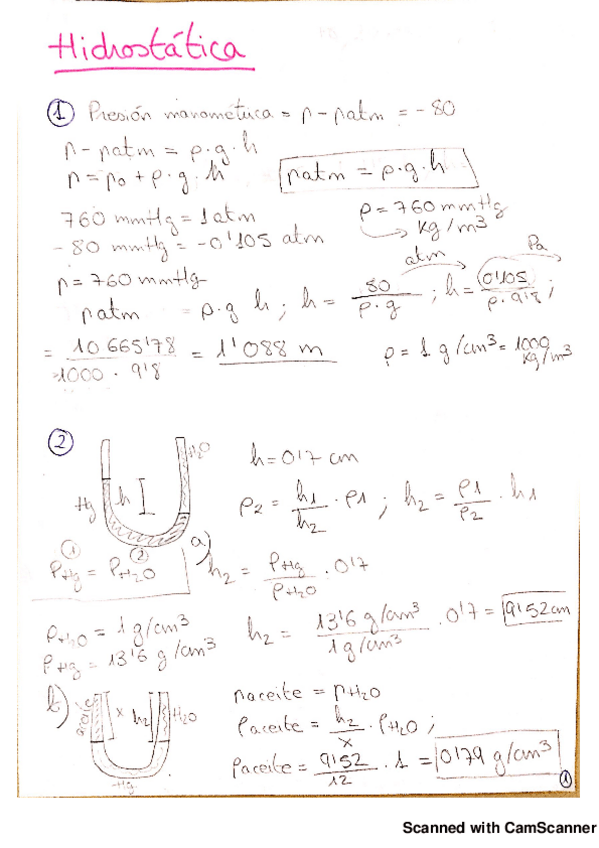 Hidrostática
① Presión manométrica = p - patm = - 80
p - patm = ρ·g·h
p = po + ρ·g·h
patm = ρ·g·h
760 mmHg = 1 atm
ρ = 760 mmHg
- 80 mmHg = -0'105 atm
kg/m³
p = 760 mmHg
atm
Pa
patm = ρ·g h ; h = 80 / ρ·g ; h = 0'105 / ρ·9'8 ;
= 10665'78 / 1000 · 9'8 = 1'088 m
ρ = 1 g/cm³ = 1000 kg/m³
②
H2O
h = 0'7 cm
Hg
h
ρ2 = h1 / h2 · ρ1 ; h2 = ρ1 / ρ2 · h1
① ②
PHg = PH2O
a) h2 = ρHg / ρH2O · 0'7
ρH2O = 1 g/cm³
ρHg = 13'6 g/cm³
h2 = 13'6 g/cm³ / 1 g/cm³ · 0'7 = 9'52 cm
b)
aceite
x
h2
H2O
Hg
paceite = pH2O
ρaceite = h2 / x · ρH2O ;
ρaceite = 9'52 / 12 · 1 = 0'79 g/cm³
①
Scanned with CamScanner